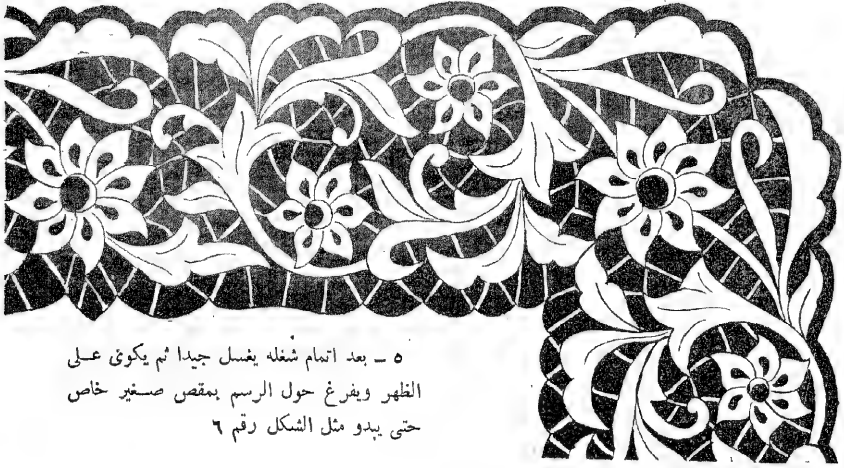 ٥ ــ بعد اتمام شغله يغسل جيدا ثم يكوى عـلى
الظهر ويفرغ حول الرسم بمقص صـغير خاص
حتى يبدو مثل الشكل رقم ٦